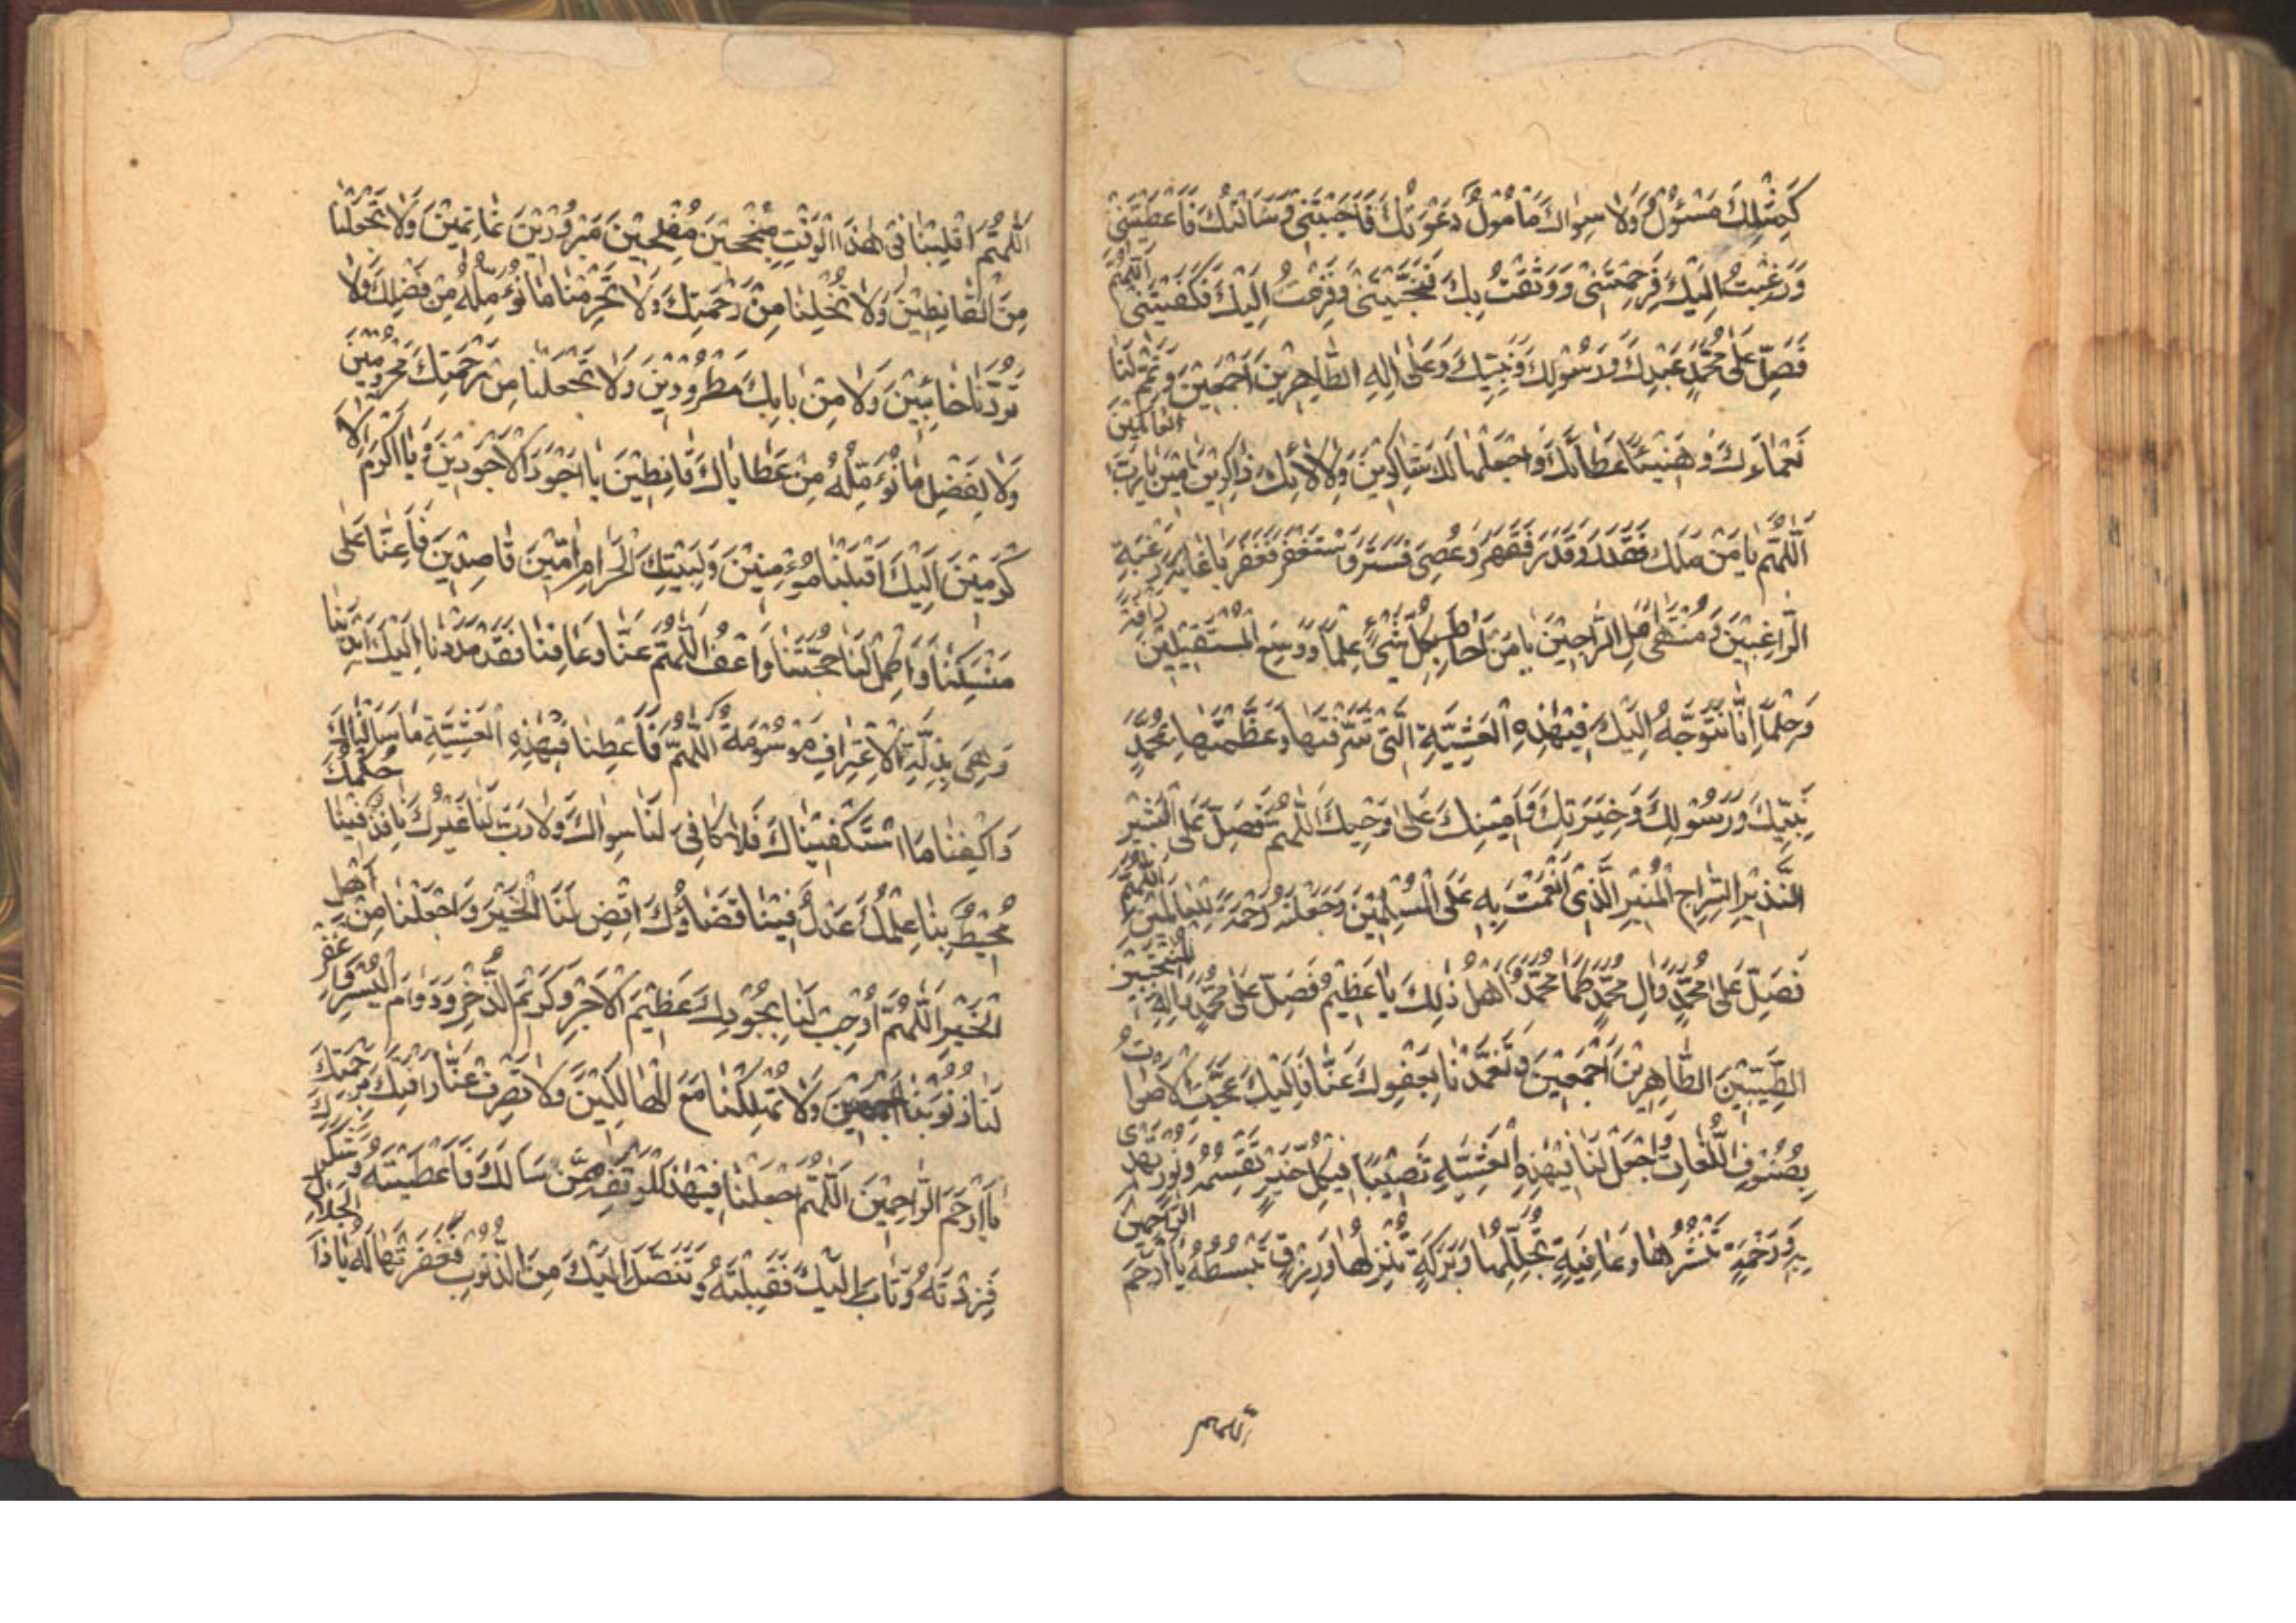 كَمِثْلِكَ مَسْئُولٌ وَلا سِواكَ مَأْمُولٌ دَعَوْتُكَ فَأَجَبْتَنِي وَسَأَلْتُكَ فَأَعْطَيْتَنِي
وَرَغِبْتُ إِلَيْكَ فَرَحِمْتَنِي وَوَثِقْتُ بِكَ فَنَجَّيْتَنِي وَفَزِعْتُ إِلَيْكَ فَكَفَيْتَنِي اللّهُمَّ
فَصَلِّ عَلى مُحَمَّدٍ عَبْدِكَ وَرَسُولِكَ وَنَبِيِّكَ وَعَلى الِهِ الطَّاهِرِينَ أَجْمَعِينَ وَتَمِّمْ لَنا
نَعْماءَكَ وَهَنِّئْنا عَطاءَكَ وَاجْعَلْنا لَكَ شاكِرِينَ وَلِالائِكَ ذاكِرِينَ امِينَ يا رَبَّ العالَمِينَ
اللّهُمَّ يا مَنْ مَلَكَ فَقَدَرَ وَقَدَرَ فَقَهَرَ وَعُصِيَ فَسَتَرَ وَاسْتُغْفِرَ فَغَفَرَ يا غايَةَ رَغْبَةِ
الرَّاغِبِينَ وَمُنْتَهى أَمَلِ الرَّاجِينَ يا مَنْ أَحاطَ بِكُلِّ شَيْءٍ عِلْماً وَوَسِعَ الْمُسْتَقِيلِينَ رَأْفَةً
وَحِلْماً إِنَّا نَتَوَجَّهُ إِلَيْكَ فِي هذِهِ الْعَشِيَّةِ الَّتِي شَرَّفْتَها وَعَظَّمْتَها بِمُحَمَّدٍ
نَبِيِّكَ وَرَسُولِكَ وَخِيَرَتِكَ وَأَمِينِكَ عَلى وَحْيِكَ اللّهُمَّ فَصَلِّ عَلَى الْبَشِيرِ
النَّذِيرِ السِّراجِ الْمُنِيرِ الَّذِي أَنْعَمْتَ بِهِ عَلَى الْمُسْلِمِينَ وَجَعَلْتَهُ رَحْمَةً لِلْعالَمِينَ اللّهُمَّ
فَصَلِّ عَلى مُحَمَّدٍ وَالِ مُحَمَّدٍ كَما مُحَمَّدٌ أَهْلُ ذلِكَ يا عَظِيمُ فَصَلِّ عَلى مُحَمَّدٍ وَالِهِ الْمُنْتَجَبِينَ
الطَّيِّبِينَ الطَّاهِرِينَ أَجْمَعِينَ وَتَغَمَّدْنا بِعَفْوِكَ عَنَّا فَإِلَيْكَ عَجَّتِ الْأَصْواتُ
بِصُنُوفِ اللُّغاتِ وَاجْعَلْ لَنا فِي هذِهِ الْعَشِيَّةِ نَصِيباً فِي كُلِّ خَيْرٍ تَقْسِمُهُ وَنُورٍ تَهْدِي
بِهِ وَرَحْمَةٍ تَنْشُرُها وَعافِيَةٍ تُجَلِّلُها وَبَرَكَةٍ تُنْزِلُها وَرِزْقٍ تَبْسُطُهُ يا أَرْحَمَ الرَّاحِمِينَ
اللهم
اللّهُمَّ اقْلِبْنا فِي هذَا الْوَقْتِ مُنْجِحِينَ مُفْلِحِينَ مَبْرُورِينَ غانِمِينَ وَلا تَجْعَلْنا
مِنَ الْقانِطِينَ وَلا تُخْلِنا مِنْ رَحْمَتِكَ وَلا تَحْرِمْنا ما نُؤَمِّلُهُ مِنْ فَضْلِكَ وَلا
تَرُدَّنا خائِبِينَ وَلا مِنْ بابِكَ مَطْرُودِينَ وَلا تَجْعَلْنا مِنْ رَحْمَتِكَ مَحْرُومِينَ
وَلا لِفَضْلِ ما نُؤَمِّلُهُ مِنْ عَطاياكَ قانِطِينَ يا أَجْوَدَ الْأَجْوَدِينَ وَيا أَكْرَمَ الْأَ
كْرَمِينَ إِلَيْكَ أَقْبَلْنا مُؤْمِنِينَ وَلِبَيْتِكَ الْحَرامِ امِّينَ قاصِدِينَ فَأَعِنَّا عَلى
مَنْسَكِنا وَأَكْمِلْ لَنا حَجَّتَنا وَاعْفُ اللّهُمَّ عَنَّا وَعافِنا فَقَدْ مَدَدْنا إِلَيْكَ أَيْدِيَنا
وَهِيَ بِذِلَّةِ الْاعْتِرافِ مَوْسُومَةٌ اللّهُمَّ فَأَعْطِنا فِي هذِهِ الْعَشِيَّةِ ما سَأَلْناكَ
وَاكْفِنا مَا اسْتَكْفَيْناكَ فَلا كافِيَ لَنا سِواكَ وَلا رَبَّ لَنا غَيْرُكَ نافِذٌ فِينا حُكْمُكَ
مُحِيطٌ بِنا عِلْمُكَ عَدْلٌ فِينا قَضاؤُكَ اقْضِ لَنَا الْخَيْرَ وَاجْعَلْنا مِنْ أَهْلِ
الْخَيْرِ اللّهُمَّ أَوْجِبْ لَنا بِجُودِكَ عَظِيمَ الْأَجْرِ وَكَرِيمَ الذُّخْرِ وَدَوامَ الْيُسْرِ فَاغْفِرْ
لَنا ذُنُوبَنا أَجْمَعِينَ وَلا تُهْلِكْنا مَعَ الْهالِكِينَ وَلا تَصْرِفْ عَنَّا رَأْفَتَكَ بِرَحْمَتِكَ
يا أَرْحَمَ الرَّاحِمِينَ اللّهُمَّ اجْعَلْنا فِي هذَا الْوَقْتِ مِمَّنْ سَأَلَكَ فَأَعْطَيْتَهُ وَشَكَرَكَ
فَزِدْتَهُ وَتابَ إِلَيْكَ فَقَبِلْتَهُ وَتَنَصَّلَ إِلَيْكَ مِنَ الذُّنُوبِ فَغَفَرْتَها لَهُ يا ذَا الْجَلالِ